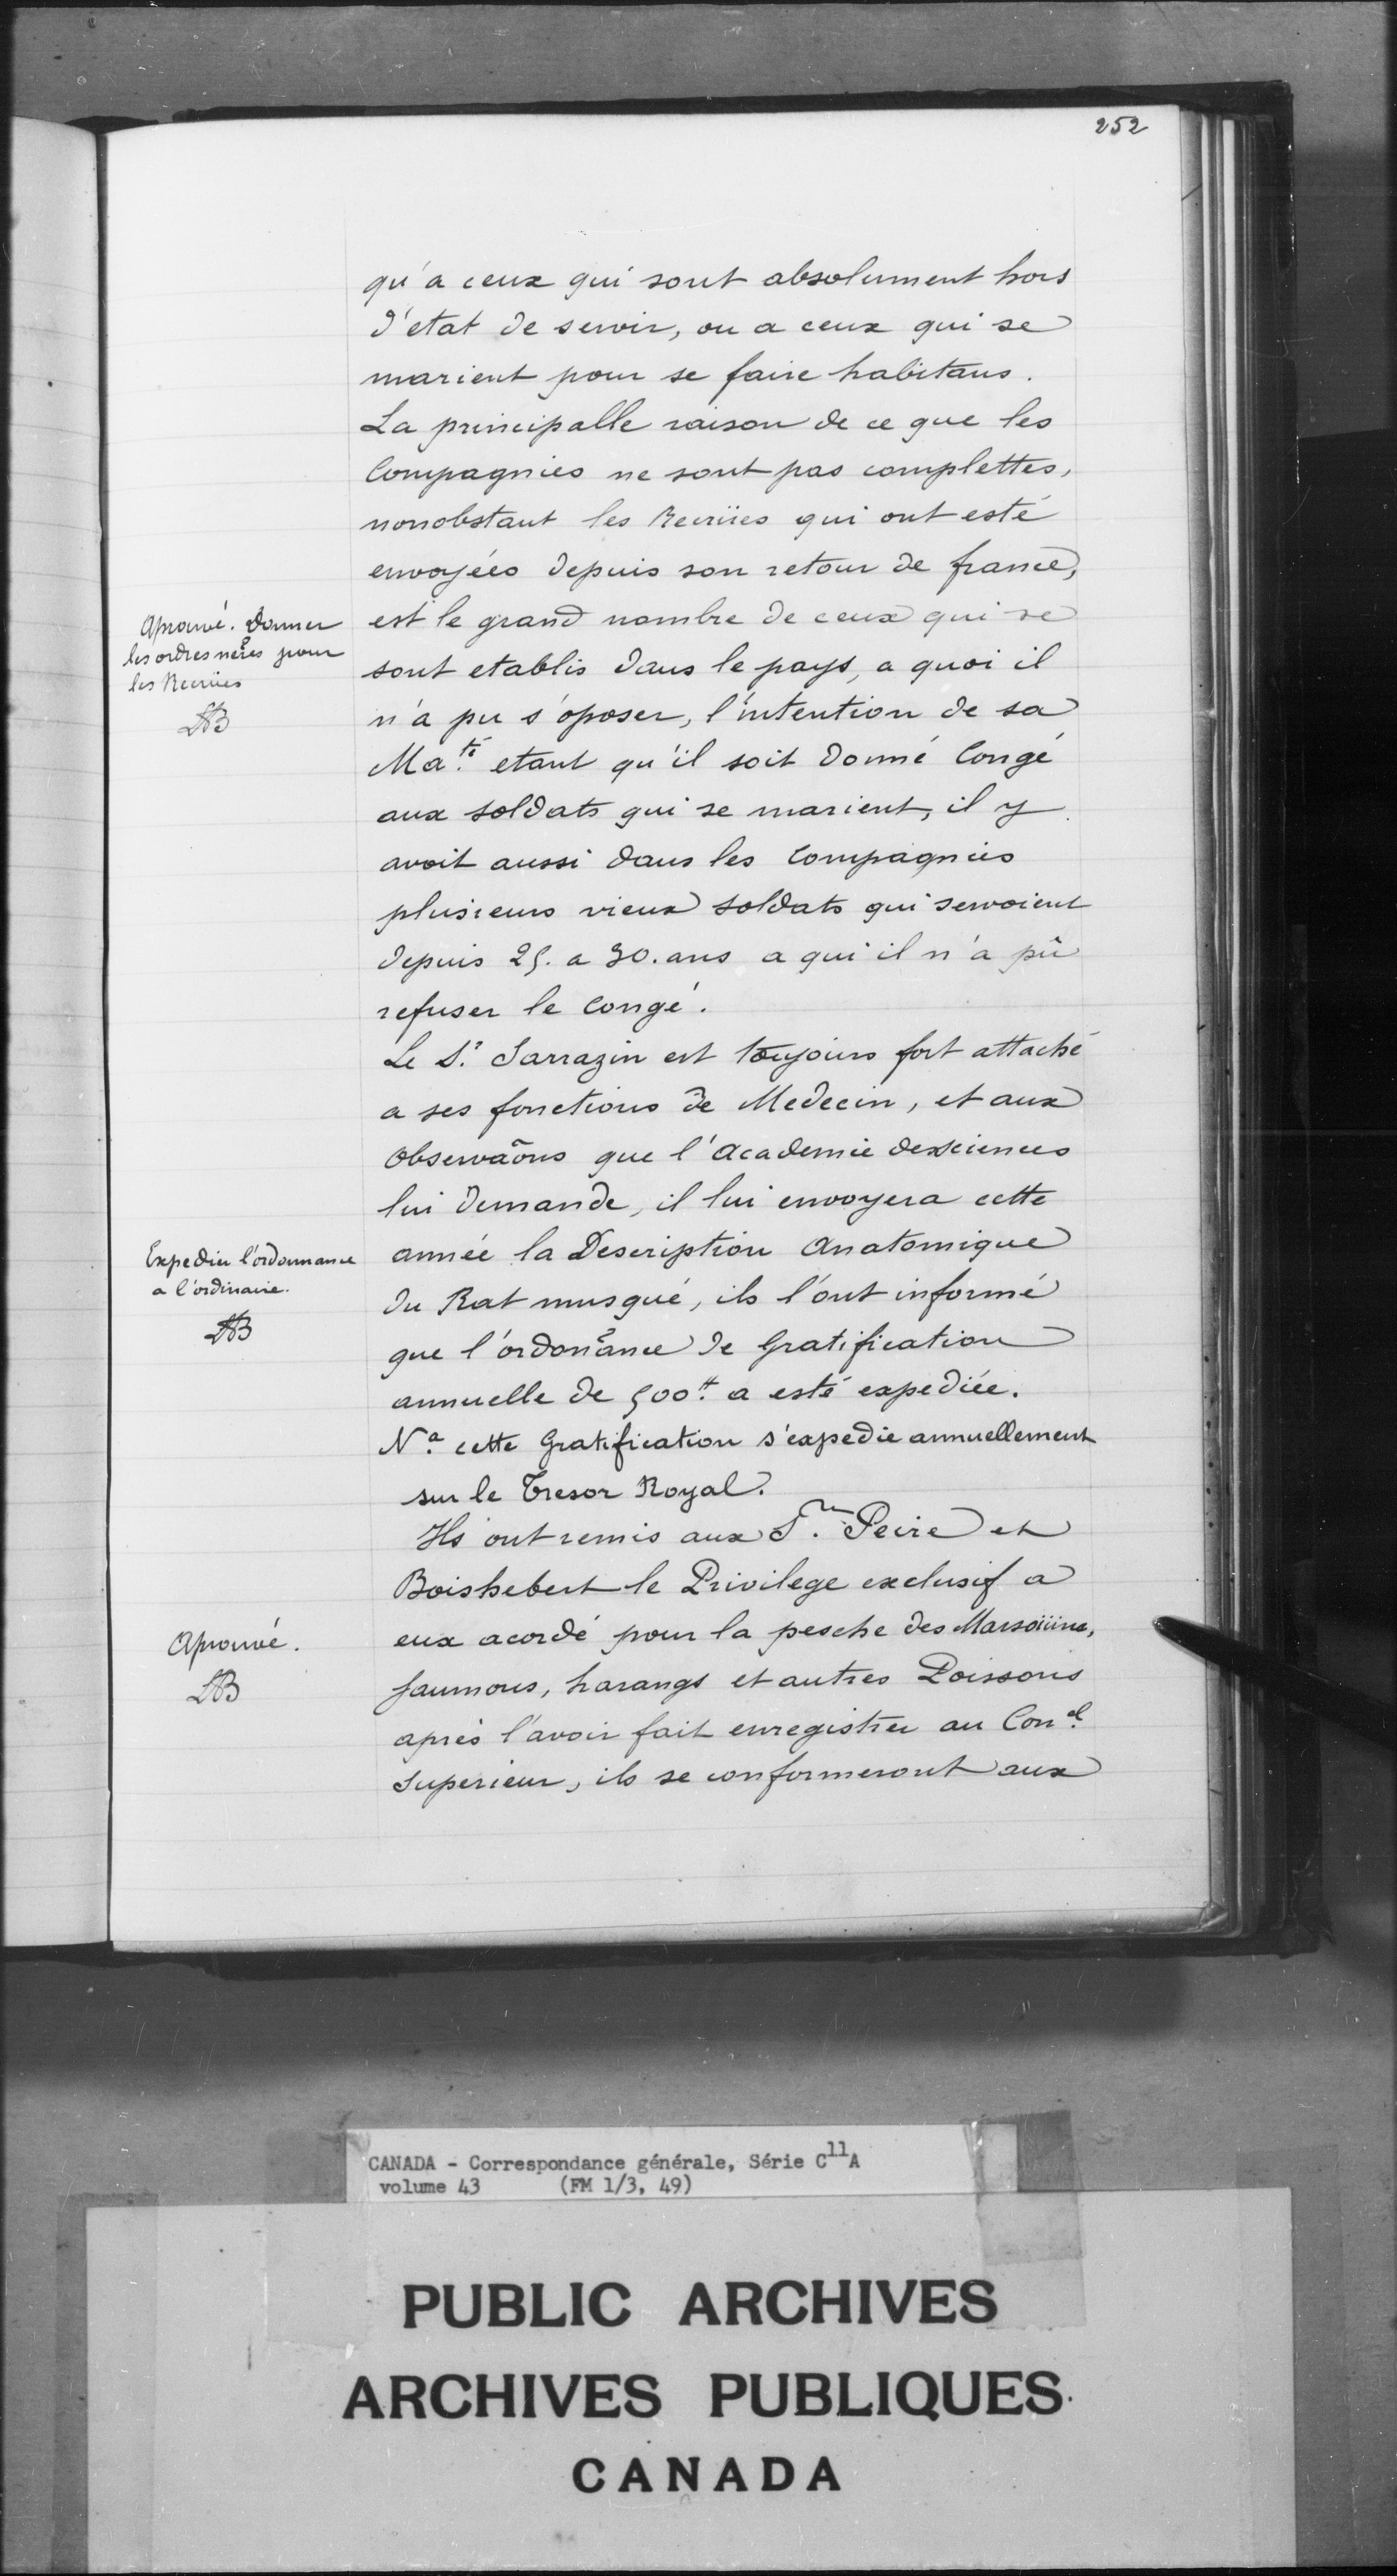 252
qu'a ceux qui sont absolument hors
d'etat de servir, ou a ceux qui se
marient pour se faire habitans.
La principalle raison de ce que les
Compagnies ne sont pas complettes,
nonobstant les Recrües qui ont esté
envoyées depuis son retour de france,
est le grand nombre de ceux qui se
sont etablis dans le pays, a quoi il
n'a pu s'oposer, l'intention de sa
Ma.té etant qu'il soit donné Congé
aux soldats qui se marient, il y
avoit aussi dans les Compagnies
plusieurs vieux soldats qui servoient
depuis 25. a 30. ans a qui il n'a pû
refuser le Congé.
Aprouvé. Donner
les ordres nẽres pour
les Recrües
LB
Le S.r Sarrazin est toujours fort attaché
a ses fonctions de Medecin, et aux
observaõns que l'Academie des sciences
lui demande, il lui envoyera cette
année la Description Anatomique
du Rat musqué, ils l'ont informé
que l'ordonãnce de Gratification
annuelle de 500.tt a esté expediée.
Expedier l'ordonnance
a l'ordinaire.
LB
N.a cette Gratification s'expedie annuellement
sur le Tresor Royal.
Ils ont remis aux S.rs Peire et
Boishebert le Privilege exclusif a
eux acordé pour la pesche des Marsoüins,
saumons, harangs et autres Poissons
après l'avoir fait enregistrer au Con.el
Superieur, ils se conformeront aux
Aprouvé.
LB
CANADA - Correspondance générale, Série C11A
volume 43 (FM 1/3, 49)
PUBLIC ARCHIVES
ARCHIVES PUBLIQUES
CANADA